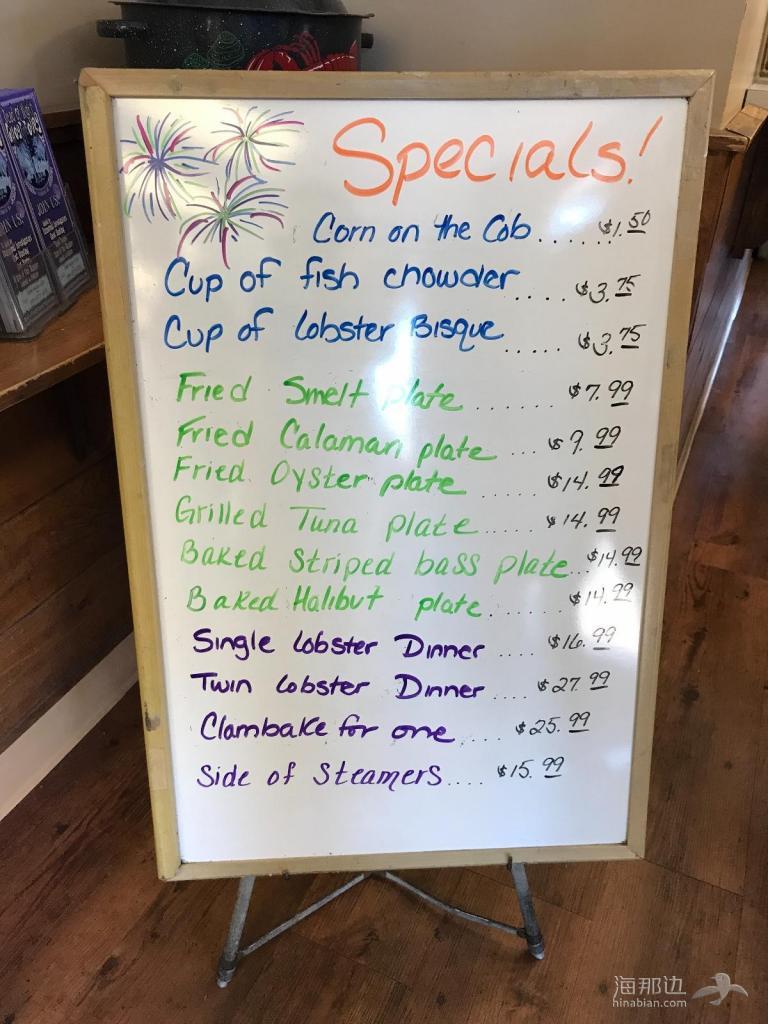 Specials!
Corn on the Cob..... $1.50
Cup of fish chowder .... $3.75
Cup of lobster Bisque ..... $3.75
Fried Smelt plate ...... $7.99
Fried Calamari plate ... $9.99
Fried Oyster plate ..... $14.99
Grilled Tuna plate ..... $14.99
Baked Striped bass plate... $14.99
Baked Halibut plate....... $14.99
Single lobster Dinner .... $16.99
Twin lobster Dinner .... $27.99
Clambake for one .... $25.99
Side of Steamers.... $15.99
JOIN US!
海那边
hinabian.com